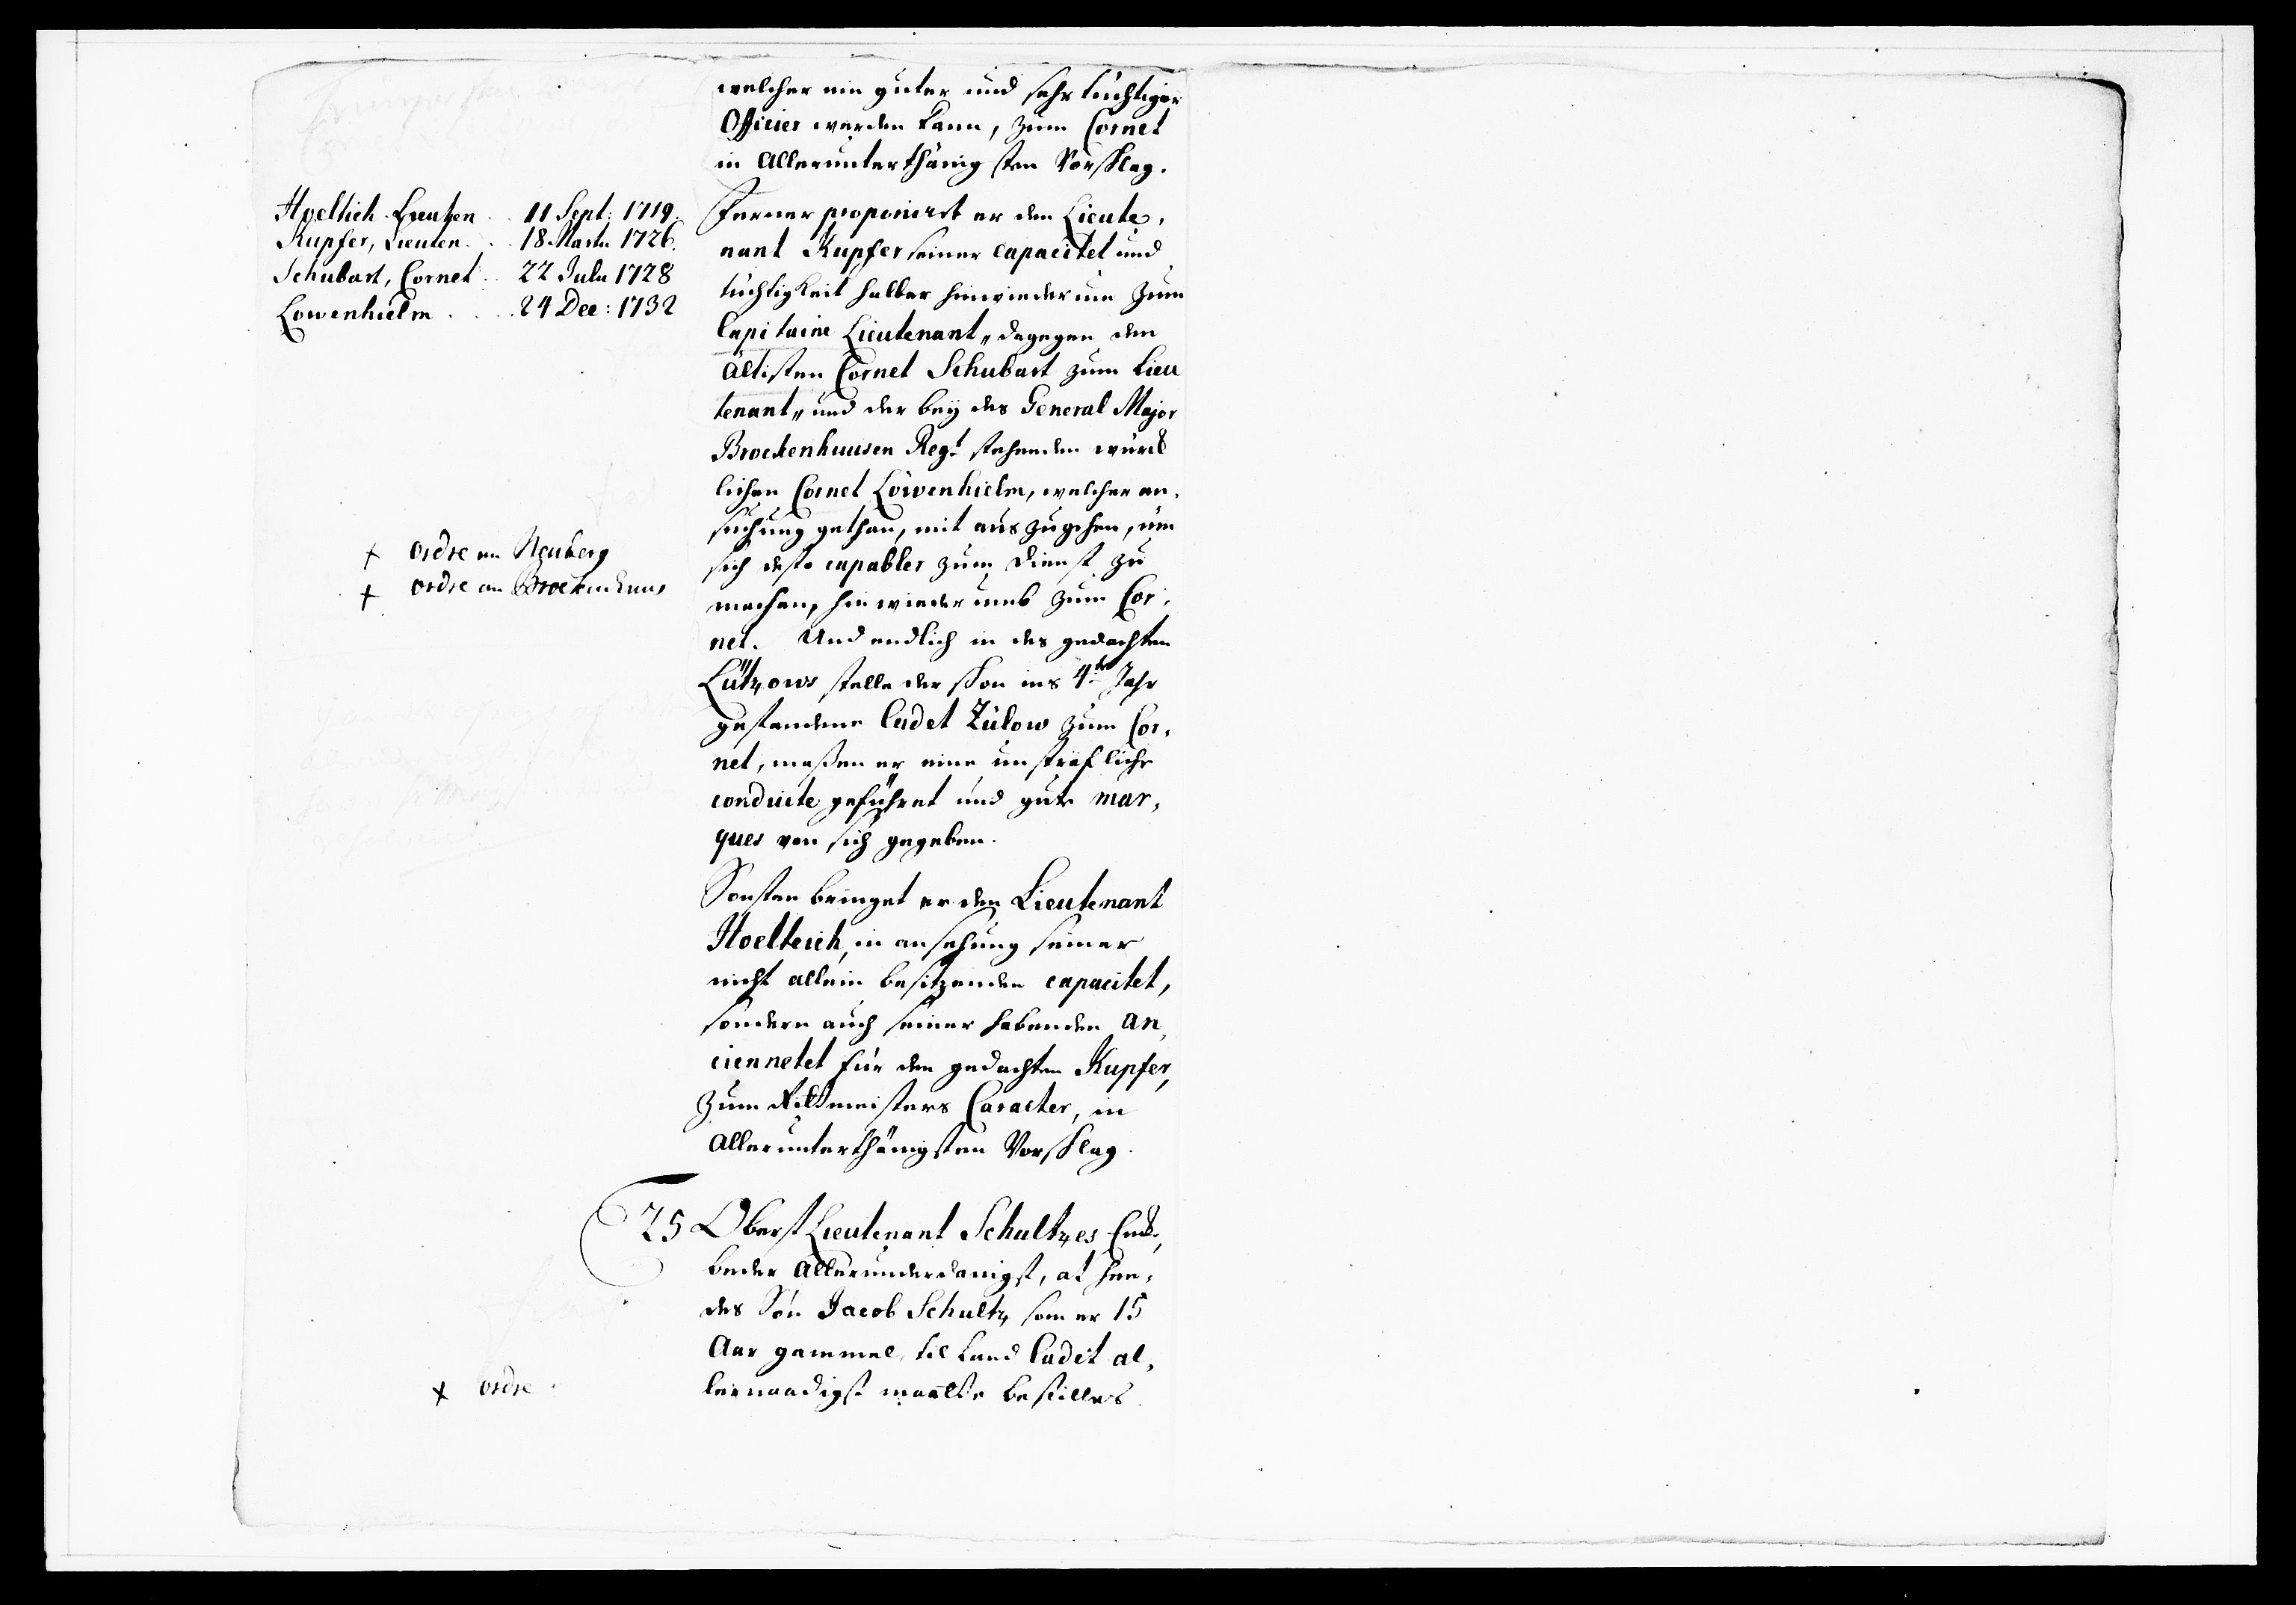 welcher ein guter und sehr tüchtiger
Officier werden kann, zum Cornet
in Allerunterthänigsten Vorschlag.
Hoeltich Lieuten . . 11 Sept: 1719.
Kupfer, Lieuten. . . 18 Martii 1726.
Schubart, Cornet . . 22 Julii 1728
Lowenhielm . . . . 24 Dec: 1732
Ferner proponiret er den Lieute,
nant Kupfer seiner capacitet und
tüchtigkeit halber hinwiederum zum
Capitaine Lieutenant„ dagegen den
ältisten Cornet Schubart zum Lieu
tenant„ und der bey des General Major
Brockenhuusen Regt stehenden würck
lichen Cornet Löwenhielm, welcher an,
suchung gethan, mit auszugehen, üm
sich desto capabler zum Dienst zu
machen, hinwiederumb zum Cor,
net. Und endlich in des gedachten
Lützows stelle der schon ins 4te Jahr
gestandene Cadet Zülow zum Cor,
net, maßen er eine unsträfliche
conduite geführet und gute mar,
ques von sich gegeben.
+ ordre an Neuberg
+ ordre an Brockenhuus
Sonsten bringet er den Lieutenant
Hoelteich, in ansehung seiner
nicht allein besitzenden capacitet,
sondern auch seiner habenden an,
ciennetet für den gedachten Kupfer,
zum Rittmeisters Caracter, in
Allerunterthänigsten Vorschlag.
25 Oberst Lieutenant Schultzes Enke,
beder Allerunderdanigst, at hen,
des Søn Jacob Schultz som er 15
Aar gammel, til Land Cadet al,
lernaadigst maatte bestilles.
+ ordre